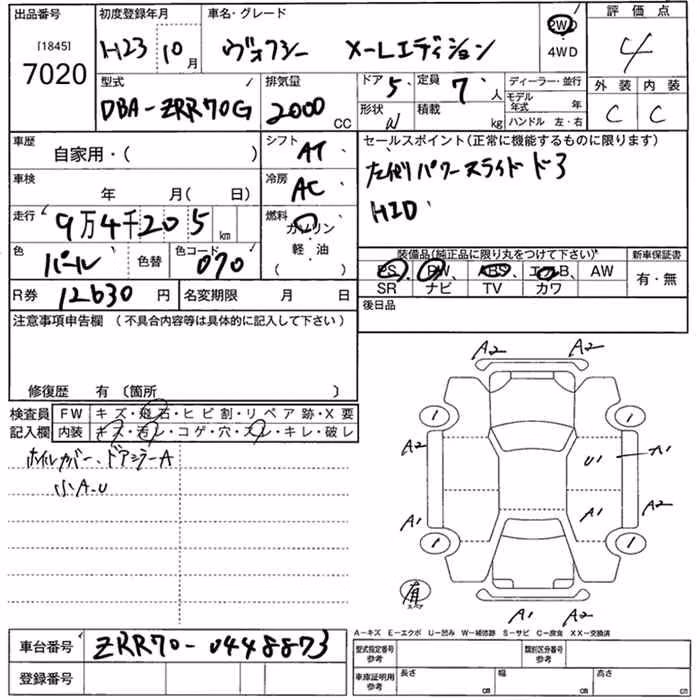 出品番号 初度登録年月 車名・グレード 評価点
［1845］
7020 H23 10月 ヴォクシー X-Lエディション 2WD 4WD 4
型式 排気量 ドア 5 定員 7 人 ディーラー・並行 外装 内装
DBA-ZRR70G 2000 CC 形状 W 積載 kg モデル年式 年 C C
ハンドル 左・右
車歴 シフト セールスポイント（正常に機能するものに限ります）
自家用・（ ） AT パワースライドドア
車検 冷房
年 月（ 日） AC HID
走行 9万4千205km 燃料 ガソリン
色 色コード 軽・油 装備品（純正品に限り丸をつけて下さい） 新車保証書
パール 色替 070 （ ） PS PW ABS エアB AW 有・無
R券 12630円 名変期限 月 日 SR ナビ TV カワ
注意事項申告欄（不具合内容等は具体的に記入して下さい） 後日品
修復歴 有 〔箇所 〕
検査員 FW キズ・飛石・ヒビ割・リペア跡・X要
記入欄 内装 キズ・汚レ・コゲ・穴・スレ・キレ・破レ
ホイルカバー、ドアミラーA
小A.U
A2 A2
1 1
A2 U1 A1
A1 A1 A2
1 1
有
スペア
A1 A2
A－キズ E－エクボ U－凹み W－補修跡 S－サビ C－腐食 XX－交換済
車台番号 ZRR70-0448873 型式指定番号 参考 類別区分番号 参考
登録番号 車庫証明用 参考 長さ cm 幅 cm 高さ cm